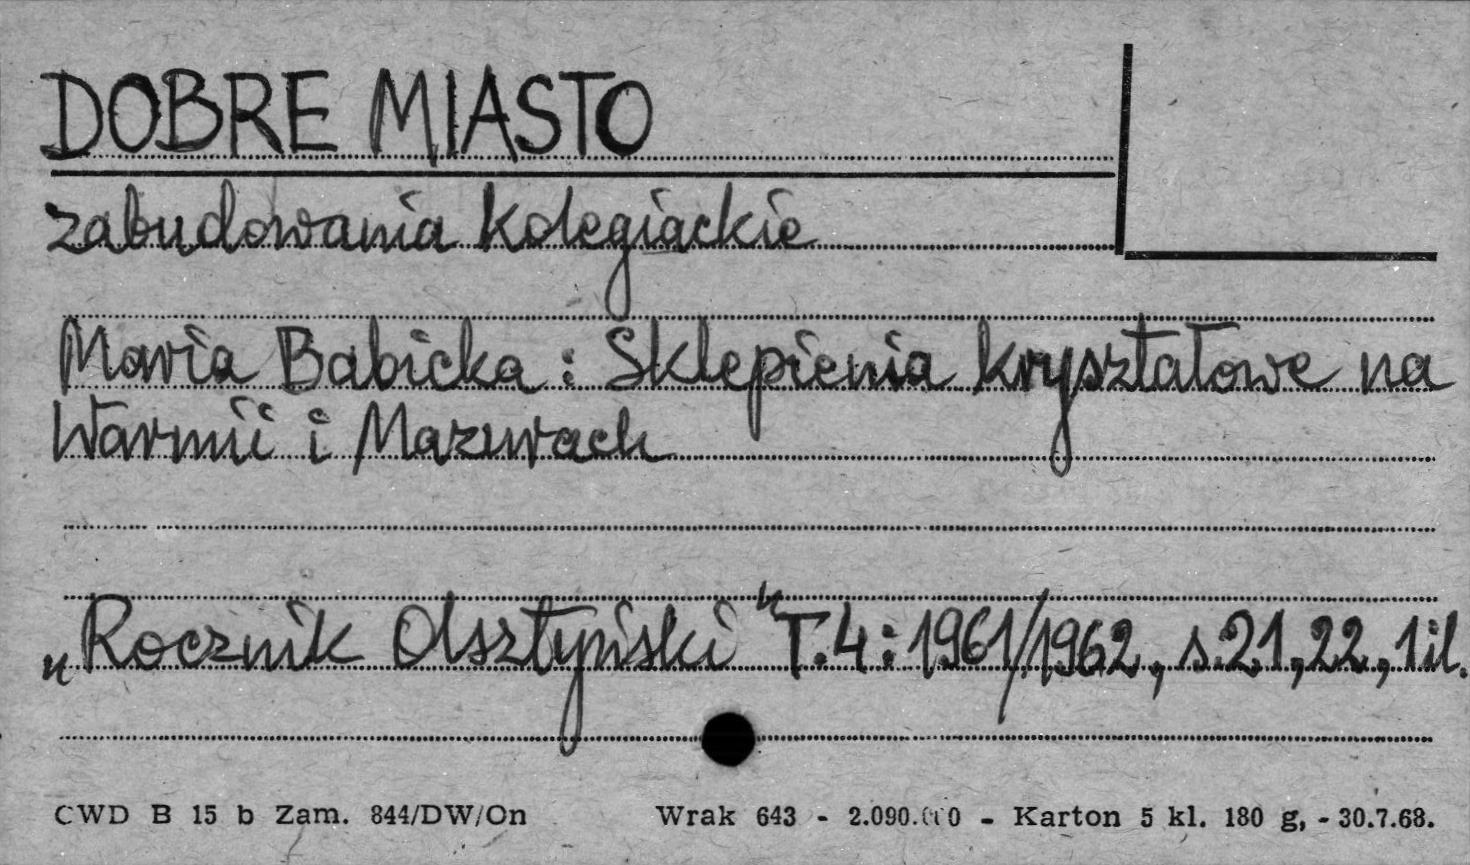 DOBRE MIASTO
zabudowania kolegiackie
Maria Babicka : Sklepienia kryształowe na
Warmii i Mazurach
„Rocznik Olsztyński" T.4 : 1961/1962, s.21,22, 1 il.
CWD B 15 b Zam. 844/DW/On Wrak 643 - 2.090.000 - Karton 5 kl. 180 g, - 30.7.68.